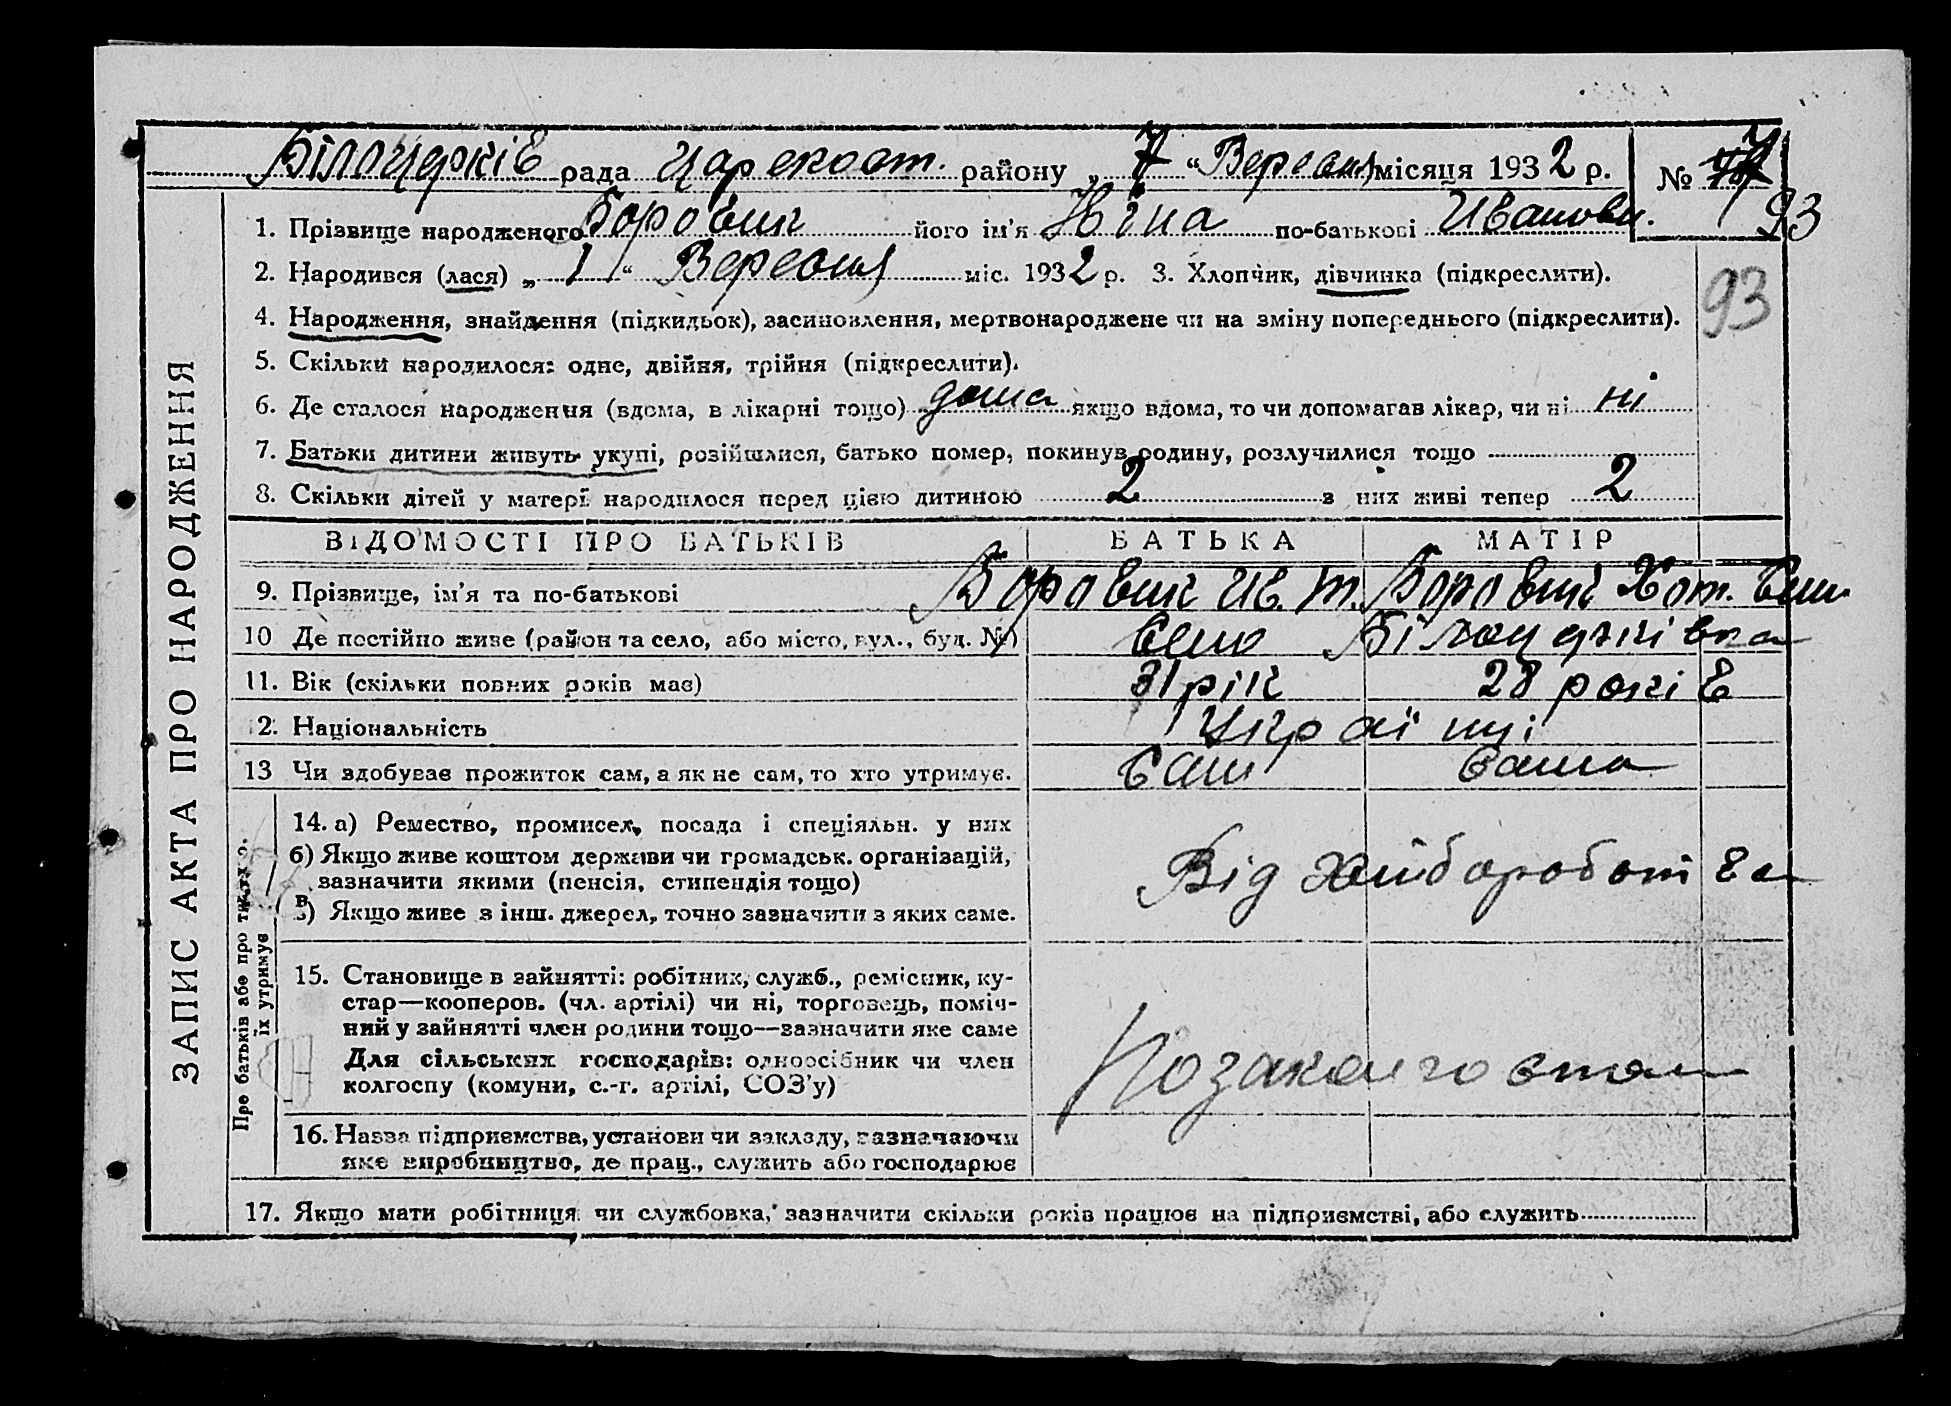 Білоцерків рада Царекост. району „ 7 “ Вересня місяця 1932 р. №
93
1. Прізвище народженого Боровик його ім'я Ніна по-батькові Ивановн.
2. Народився (лася) „ 1 “ Вересня міс. 1932 р. 3. Хлопчик, дівчинка (підкреслити).
93
4. Народження, знайдення (підкидьок), засиновлення, мертвонароджене чи на зміну попереднього (підкреслити).
5. Скільки народилося: одне, двійня, трійня (підкреслити).
6. Де сталося народження (вдома, в лікарні тощо) дома якщо вдома, то чи допомагав лікар, чи ні ні
7. Батьки дитини живуть укупі, розійшлися, батько помер, покинув родину, розлучилися тощо
8. Скільки дітей у матері народилося перед цією дитиною 2 з них живі тепер 2
ЗАПИС АКТА ПРО НАРОДЖЕННЯ
ВІДОМОСТІ ПРО БАТЬКІВ БАТЬКА МАТІР
9. Прізвище, ім'я та по-батькові Боровик Ив. Т. Боровик Хот.
10 Де постійно живе (район та село, або місто, вул., буд. №) Село Білоцерківка
11. Вік (скільки повних років має) 31 рік 28 років
2. Національність Українці
13 Чи здобуває прожиток сам, а як не сам, то хто утримує. Сам Сама
Про батьків або про тих, хто їх утримує
14. а) Ремество, промисел, посада і спеціяльн. у них
б) Якщо живе коштом держави чи громадськ. організацій,
зазначити якими (пенсія, стипендія тощо)
в) Якщо живе з інш. джерел, точно зазначити з яких саме.
Від хліборобства
15. Становище в зайнятті: робітник, служб., ремісник, ку-
стар—кооперов. (чл. артілі) чи ні, торговець, поміч-
ний у зайнятті член родини тощо—зазначити яке саме
Для сільських господарів: одноосібник чи член
колгоспу (комуни, с.-г. артілі, СОЗ'у)
16. Назва підприємства, установи чи закладу, зазначаючи
яке виробництво, де прац., служить або господарює
17. Якщо мати робітниця чи службовка, зазначити скільки років працює на підприємстві, або служить